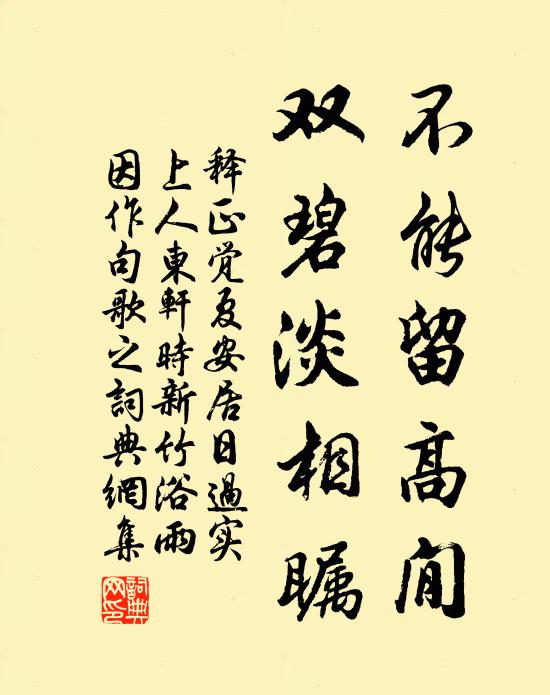 不能留高闲
双碧淡相瞩
释正觉夏安居日過实
上人東軒時新竹浴雨
因作句歌之詞典網集
詞典
网印